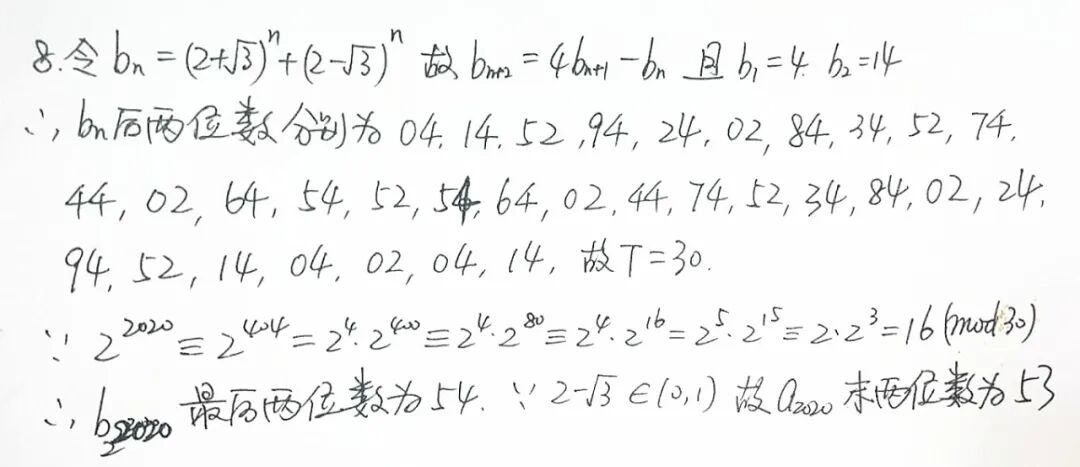 8.令 bₙ = (2+√3)ⁿ+(2-√3)ⁿ 故 bₙ₊₂ = 4bₙ₊₁ - bₙ 且 b₁=4. b₂=14
∴ bₙ后两位数分别为 04. 14. 52 ,94, 24, 02, 84, 34, 52, 74,
44, 02, 64, 54, 52, 54, 64, 02, 44, 74, 52, 34, 84, 02, 24,
94, 52, 14, 04, 02, 04, 14, 故T=30.
∵ 2²⁰²⁰ ≡ 2⁴⁰⁴ = 2⁴·2⁴⁰⁰ ≡ 2⁴·2⁸⁰ ≡ 2⁴·2¹⁶ = 2⁵·2¹⁵ ≡ 2·2³ = 16 (mod 30)
∴ b₂²⁰²⁰ 最后两位数为 54. ∵ 2-√3 ∈(0,1) 故 a₂₀₂₀ 末两位数为 53